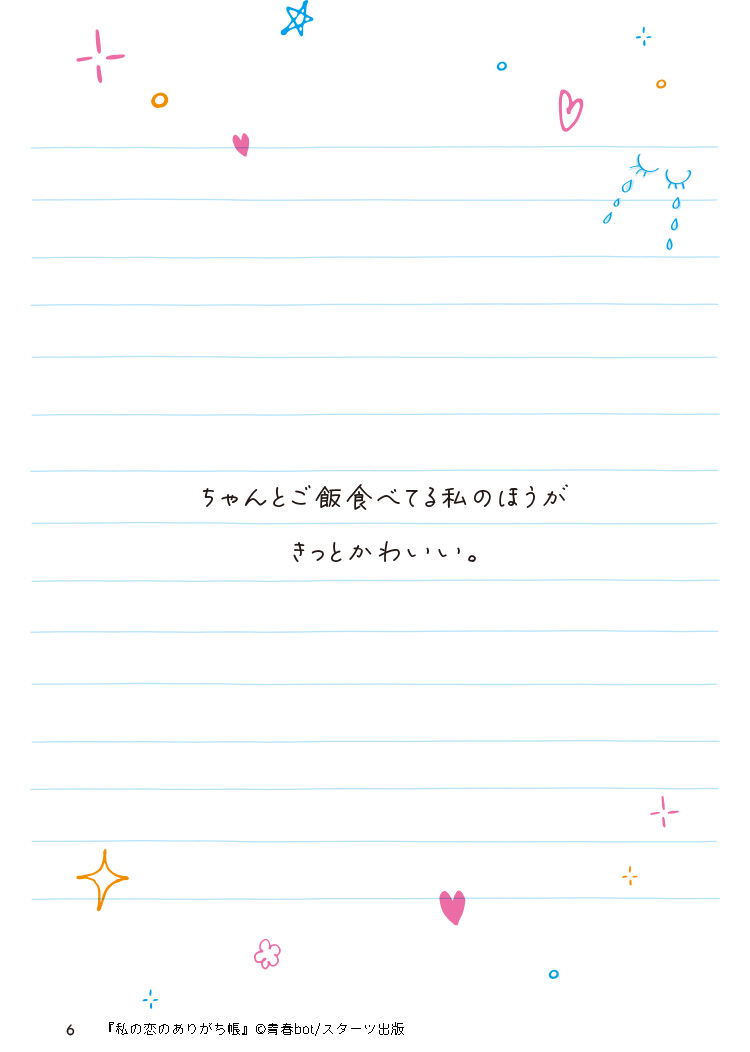 ちゃんとご飯食べてる私のほうが
きっとかわいい。
6 『私の恋のありがち帳』©青春bot/スターツ出版